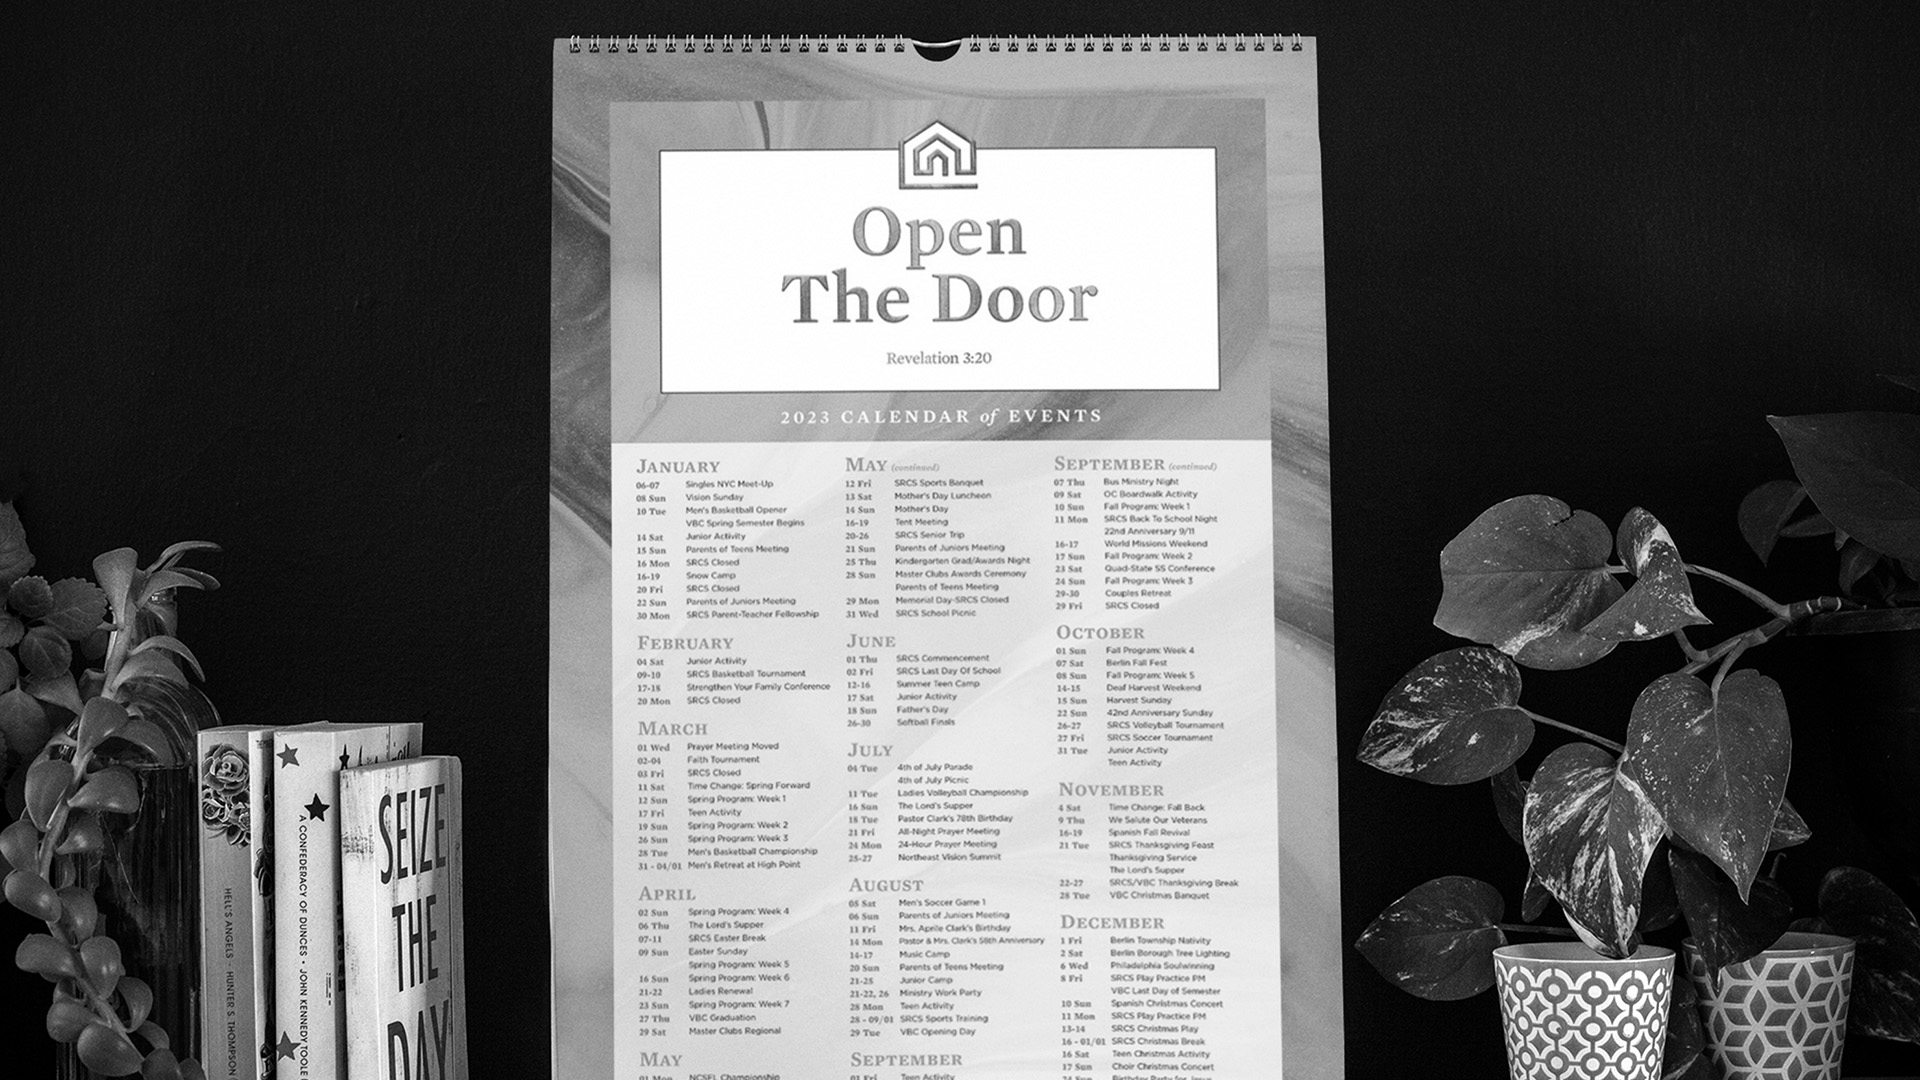 Open
The Door
Revelation 3:20
2023 CALENDAR of EVENTS
JANUARY
06-07 Singles NYC Meet-Up
08 Sun Vision Sunday
10 Tue Men's Basketball Opener
VBC Spring Semester Begins
14 Sat Junior Activity
15 Sun Parents of Teens Meeting
16 Mon SRCS Closed
16-19 Snow Camp
20 Fri SRCS Closed
22 Sun Parents of Juniors Meeting
30 Mon SRCS Parent-Teacher Fellowship
FEBRUARY
04 Sat Junior Activity
09-10 SRCS Basketball Tournament
17-18 Strengthen Your Family Conference
20 Mon SRCS Closed
MARCH
01 Wed Prayer Meeting Moved
02-04 Faith Tournament
03 Fri SRCS Closed
11 Sat Time Change: Spring Forward
12 Sun Spring Program: Week 1
17 Fri Teen Activity
19 Sun Spring Program: Week 2
26 Sun Spring Program: Week 3
28 Tue Men's Basketball Championship
31 - 04/01 Men's Retreat at High Point
APRIL
02 Sun Spring Program: Week 4
06 Thu The Lord's Supper
07-11 SRCS Easter Break
09 Sun Easter Sunday
Spring Program: Week 5
16 Sun Spring Program: Week 6
21-22 Ladies Renewal
23 Sun Spring Program: Week 7
27 Thu VBC Graduation
29 Sat Master Clubs Regional
MAY
01 Mon NCSFL Championship
MAY (continued)
12 Fri SRCS Sports Banquet
13 Sat Mother's Day Luncheon
14 Sun Mother's Day
16-19 Tent Meeting
20-26 SRCS Senior Trip
21 Sun Parents of Juniors Meeting
25 Thu Kindergarten Grad/Awards Night
28 Sun Master Clubs Awards Ceremony
Parents of Teens Meeting
29 Mon Memorial Day-SRCS Closed
31 Wed SRCS School Picnic
JUNE
01 Thu SRCS Commencement
02 Fri SRCS Last Day Of School
12-16 Summer Teen Camp
17 Sat Junior Activity
18 Sun Father's Day
26-30 Softball Finals
JULY
04 Tue 4th of July Parade
4th of July Picnic
11 Tue Ladies Volleyball Championship
16 Sun The Lord's Supper
18 Tue Pastor Clark's 78th Birthday
21 Fri All-Night Prayer Meeting
24 Mon 24-Hour Prayer Meeting
25-27 Northeast Vision Summit
AUGUST
05 Sat Men's Soccer Game 1
06 Sun Parents of Juniors Meeting
11 Fri Mrs. Aprile Clark's Birthday
14 Mon Pastor & Mrs. Clark's 58th Anniversary
14-17 Music Camp
20 Sun Parents of Teens Meeting
21-25 Junior Camp
21-22, 26 Ministry Work Party
28 Mon Teen Activity
28 - 09/01 SRCS Sports Training
29 Tue VBC Opening Day
SEPTEMBER
01 Fri Teen Activity
SEPTEMBER (continued)
07 Thu Bus Ministry Night
09 Sat OC Boardwalk Activity
10 Sun Fall Program: Week 1
11 Mon SRCS Back To School Night
22nd Anniversary 9/11
16-17 World Missions Weekend
17 Sun Fall Program: Week 2
23 Sat Quad-State SS Conference
24 Sun Fall Program: Week 3
29-30 Couples Retreat
29 Fri SRCS Closed
OCTOBER
01 Sun Fall Program: Week 4
07 Sat Berlin Fall Fest
08 Sun Fall Program: Week 5
14-15 Deaf Harvest Weekend
15 Sun Harvest Sunday
22 Sun 42nd Anniversary Sunday
26-27 SRCS Volleyball Tournament
27 Fri SRCS Soccer Tournament
31 Tue Junior Activity
Teen Activity
NOVEMBER
4 Sat Time Change: Fall Back
9 Thu We Salute Our Veterans
16-19 Spanish Fall Revival
21 Tue SRCS Thanksgiving Feast
Thanksgiving Service
The Lord's Supper
22-27 SRCS/VBC Thanksgiving Break
28 Tue VBC Christmas Banquet
DECEMBER
1 Fri Berlin Township Nativity
2 Sat Berlin Borough Tree Lighting
6 Wed Philadelphia Soulwinning
8 Fri SRCS Play Practice PM
VBC Last Day of Semester
10 Sun Spanish Christmas Concert
11 Mon SRCS Play Practice PM
13-14 SRCS Christmas Play
16 - 01/01 SRCS Christmas Break
16 Sat Teen Christmas Activity
17 Sun Choir Christmas Concert
24 Sun Birthday Party for Jesus
HELL'S ANGELS · HUNTER S. THOMPSON
A CONFEDERACY OF DUNCES • JOHN KENNEDY TOOLE
SEIZE
THE
DAY